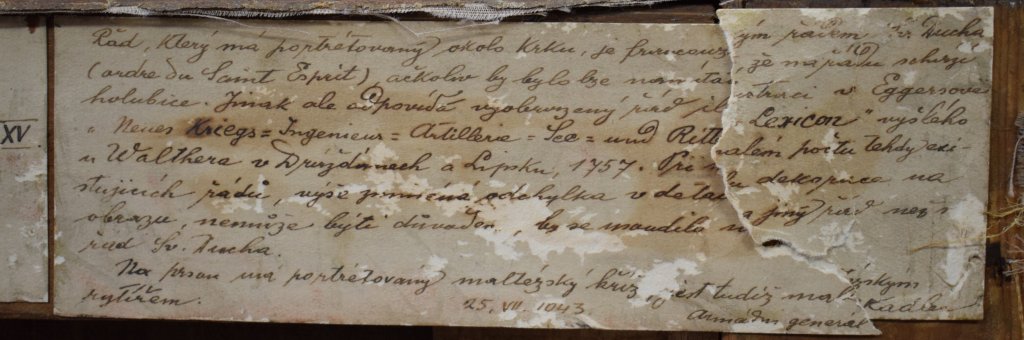 XV
Řád, který má portrétovaný okolo krku, je francouz ým řádem Sv. Ducha
(ordre du Saint Esprit), ačkoliv by bylo lze namíta že na řádu schází
holubice. Jinak ale odpovídá vyobrazený řád ilustraci v Eggersově
"Neues Kriegs=Ingenieur=Artillerie=See=und Ritt Lexicon" vyšlého
u Walthera v Drážďanech a Lipsku, 1757. Při malém počtu tehdy exi-
stujících řádů, výše zmíněná odchylka v detailu dekorace na
obrazu, nemůže býti důvodem, by se soudilo na jiný řád než
řád Sv. Ducha.
Na prsou má portrétovaný maltézský kříž, jest tudíž mal ézským
rytířem.
25. VII. 1943
Armádní generál